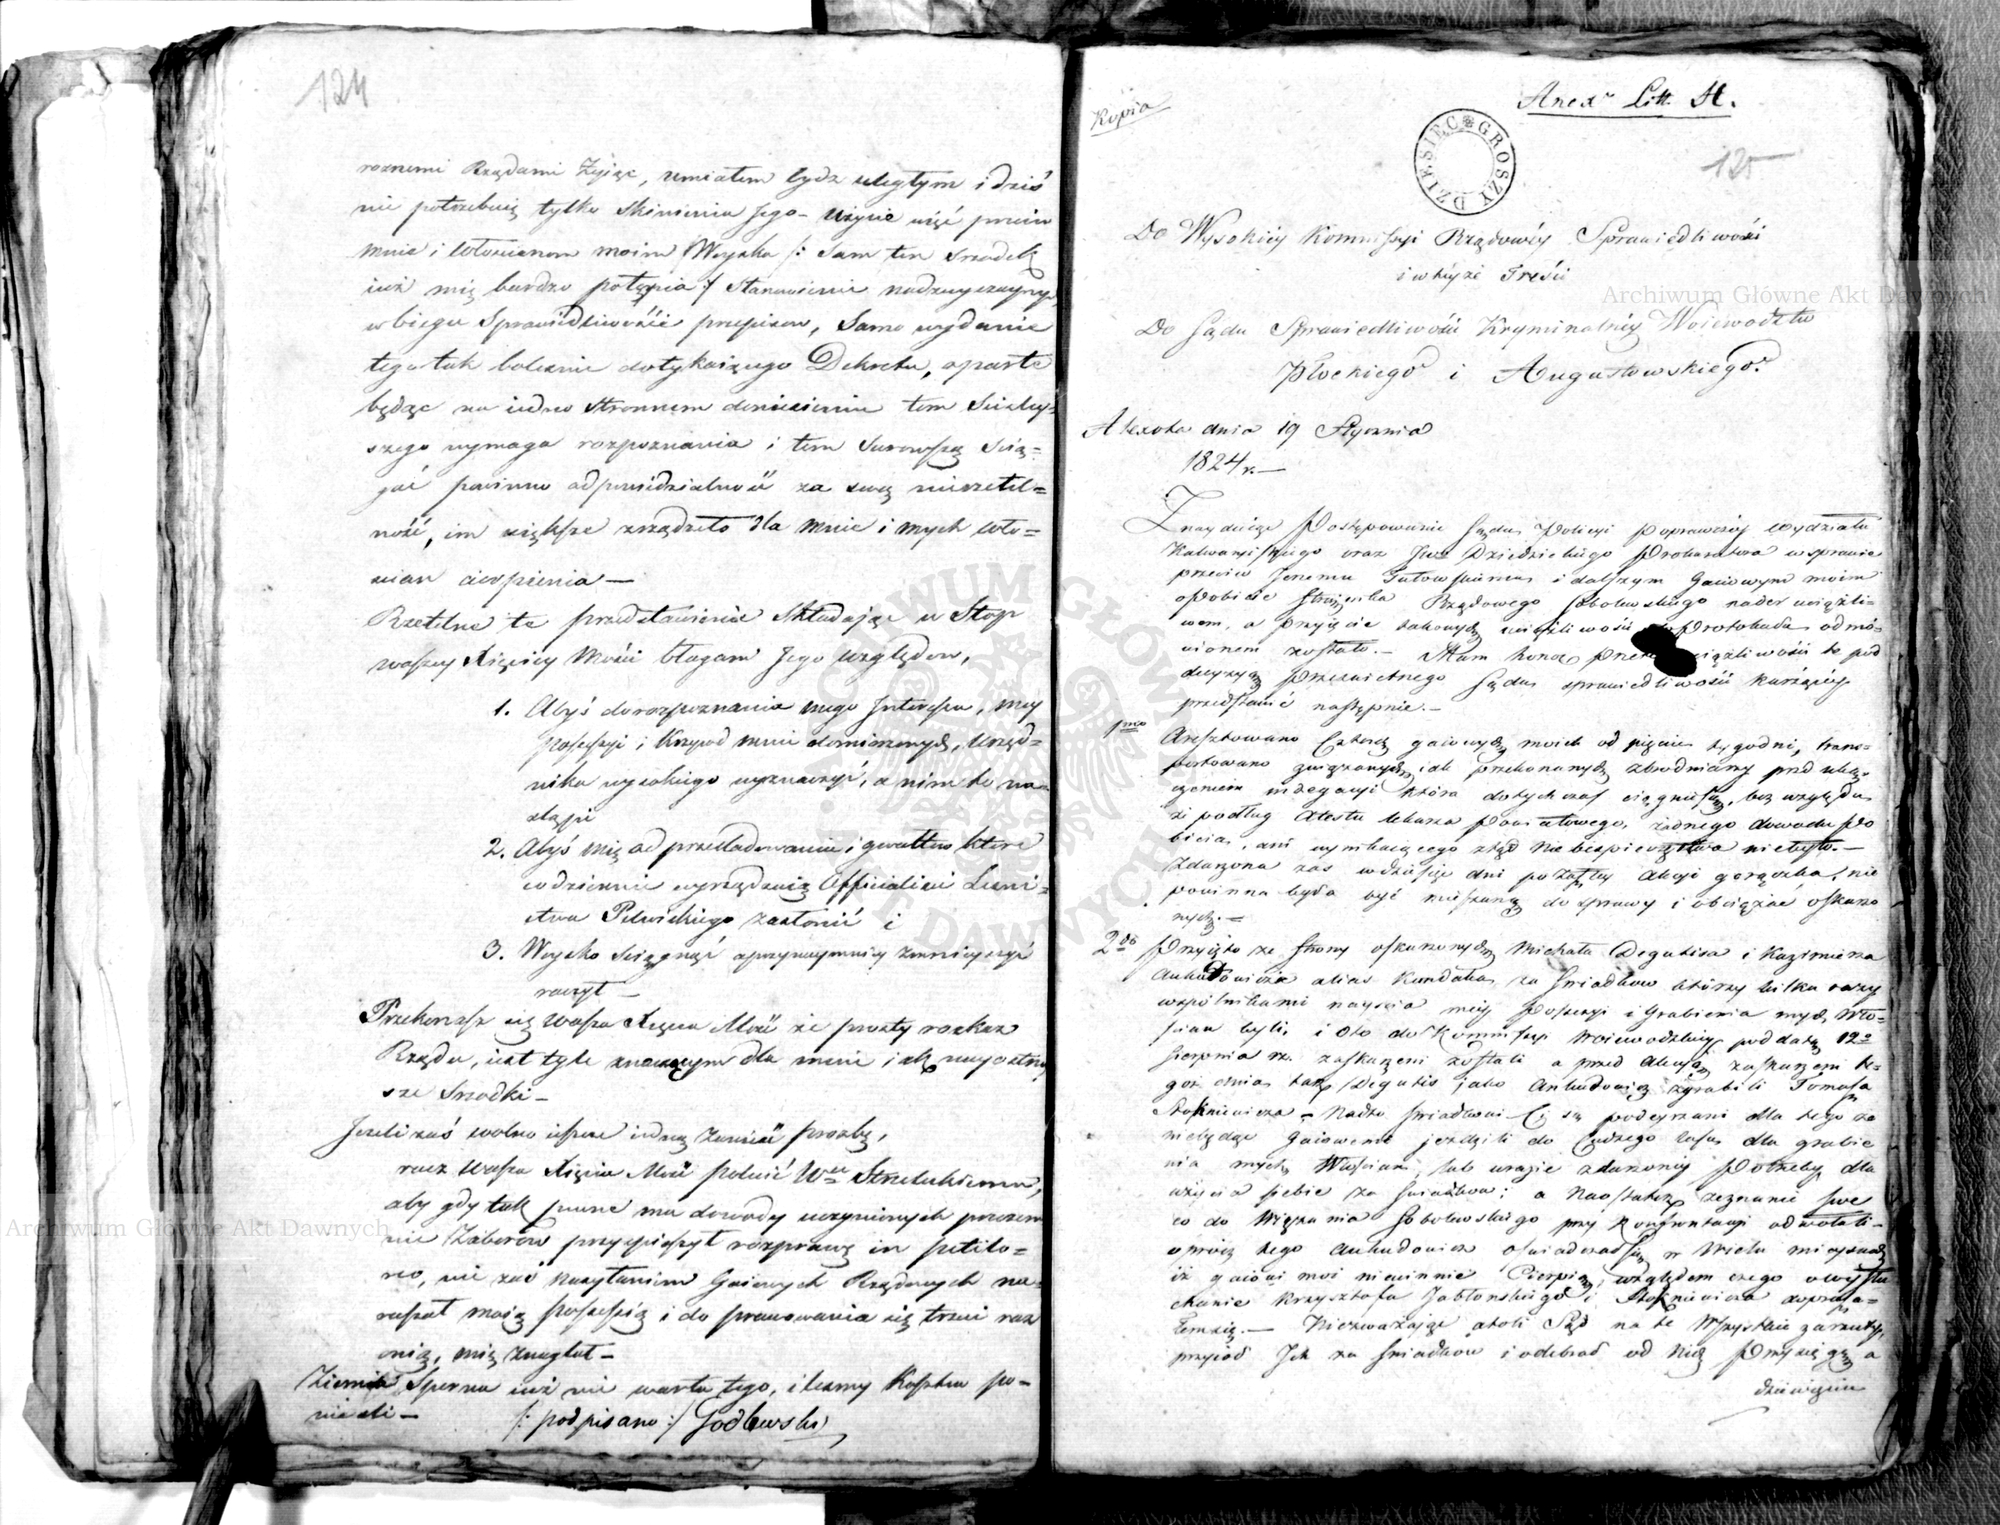 124
roznemi Rządami Żyjąc, umiałem bydź uległym i dziś
nie potrzebuię tylko Skinienia Jego – użycie więc przeciw
mnie i Włościanom moim Woyska /: Sam ten Srzodek
iuż mię bardzo potępia :/ Stanowienie nadzwyczayny
w biegu Sprawiedliwości przepisow, Samo wydanie
tego tak boleśnie dotykaiącego Dekretu, oparte
będąc na iedno Stronnem doniesieniu tem Sciśley-
szego wymaga rozpoznania i tem Surowszą Scią=
gać powinno odpowiedzialność za swą nierzetel=
ność, im większe zrządziło dla mnie i mych Wło=
scian cierpienia —
Rzetelne te przedstawienie Składając u Stop
waszey Xiążęcey Mości błagam Jego względow,
1. Abyś do rozpoznania mego Interessu, mey
Possessyi i Krzywd mnie domierzonych, Urzęd=
nika wysokiego wyznaczyć, a nim to na=
stąpi
2. Abyś mię od prześladowania i gwałtow które
codziennie wyrządzaią Officialiści Leśni=
ctwa Pilwiskiego zasłonić i
3. Woysko Sciągnąć a przynaymniey zmnieyszyć
raczył —
Przekonasz się Wasza Xiążęca Mość że prosty rozkaz
Rządu, iest tyle znaczącym dla mnie iak nayostrzey
sze Srzodki —
Jeżeli zaś wolno ieszcze iedną zanieść prozbę,
racz Wasza Xiążęca Mość polecić Wmu Strzeleckiemu,
aby gdy tak pewne ma dowody uczynionych przezem
nie Zaborow przyspieszył rozprawę in petito=
rio, nie zaś nasyłaniem Gaiowych Rządowych na=
ruszał moią possessyą i do prawowania się trzeci raz
o nią, mię znaglał —
Ziemia Sporna iuż nie warta tego, ileśmy Kosztu po=
nieśli — /: podpisano :/ Godlewski
Kopia
Anex Litt. H.
DZIESIĘC GROSZY
125
Do Wysokiey Kommissyi Rządowey Sprawiedliwości
i w teyże Treści
Do Sądu Sprawiedliwości Kryminalney Woiewodztw
Płockiego i Augustowskiego.
Alexota dnia 19 Stycznia
1824 r. —
Znayduiąc Postępowanie Sądu Policyi Poprawczey Wydziału
Kalwaryiskiego oraz Jwo Dziedzickiego Prokuratora w sprawie
przeciw Jenemu Gutowskiemu i dalszym Gaiowym moim
o pobicie Strażnika Rządowego Sobolewskiego nader uciążli=
wem, a przyięcie takowych uciążliwości do Protokułu odmó=
wionem zostało. — Mam honor uciążliwości te pod
decyzyą Prześwietnego Sądu sprawiedliwości karzącey
przedstawić następnie. —
1mo Aresztowano Czterech gaiowych moich od pięciu tygodni, trans=
portowano związanych iak przekonanych zbrodniarzy przed ukoń=
czeniem indagacyi która dotychczas ciągnie się, bez względu
że podług Atestu lekarza Powiatowego, żadnego dowodu Po
bicia, ani wynikaiącego ztąd Niebezpieczeństwa nie było. —
Zdarzona zaś w dziesięć dni po zaszłey Akcyi gorączka, nie
powinna była być mieszaną do sprawy i obciążać oskarżo
nych. —
2do Przyięto ze Strony oskarżonych Michała Degutisa i Kazimierza
Ankudowicza alias Kundata, za Swiadkow którzy kilka razy
wspólnikami nayścia mey Possessyi i Grabienia mych Wło=
ścian byli, i oto do Kommissyi Woiewodzkiey pod datą 12o
Sierpnia r. z. zaskarżeni zostali a przed Akcyą zaskarżeni te=
goż dnia tak Degutis jako Ankudowicz zgrabili Tomasza
Stoskniewicza — Nadto Swiadkowie Ci są podeyrzani dla tego że
niebędąc Gaiowemi jeździli do Cudzego lasu dla grabie
nia mych Włościan, lub w razie zdarzoney Potrzeby dla
użycia siebie za Swiadkow; a Naostatek zeznanie swe
co do Wiązania Sobolewskiego przy Konfrontacyi odwołali —
oprócz tego Ankudowicz oświadczał się w Wielu mieyscach
iż gaiowi moi niewinnie Cierpią, względem czego o wysłu
chanie Krzysztofa Jabłonskiego i Stoskniewicza uprasza=
łem się. — Niezważając atoli Sąd na te Wszystkie zarzuty,
przyiął Ich za Swiadkow i odebrał od Nich Przysięgę a
dziewięciu
Archiwum Główne Akt Dawnych
Archiwum Główne Akt Dawnych